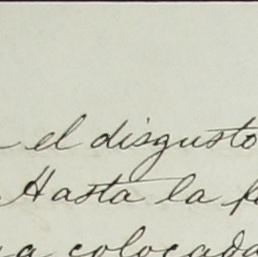 el disgusto
Hasta la
colocada